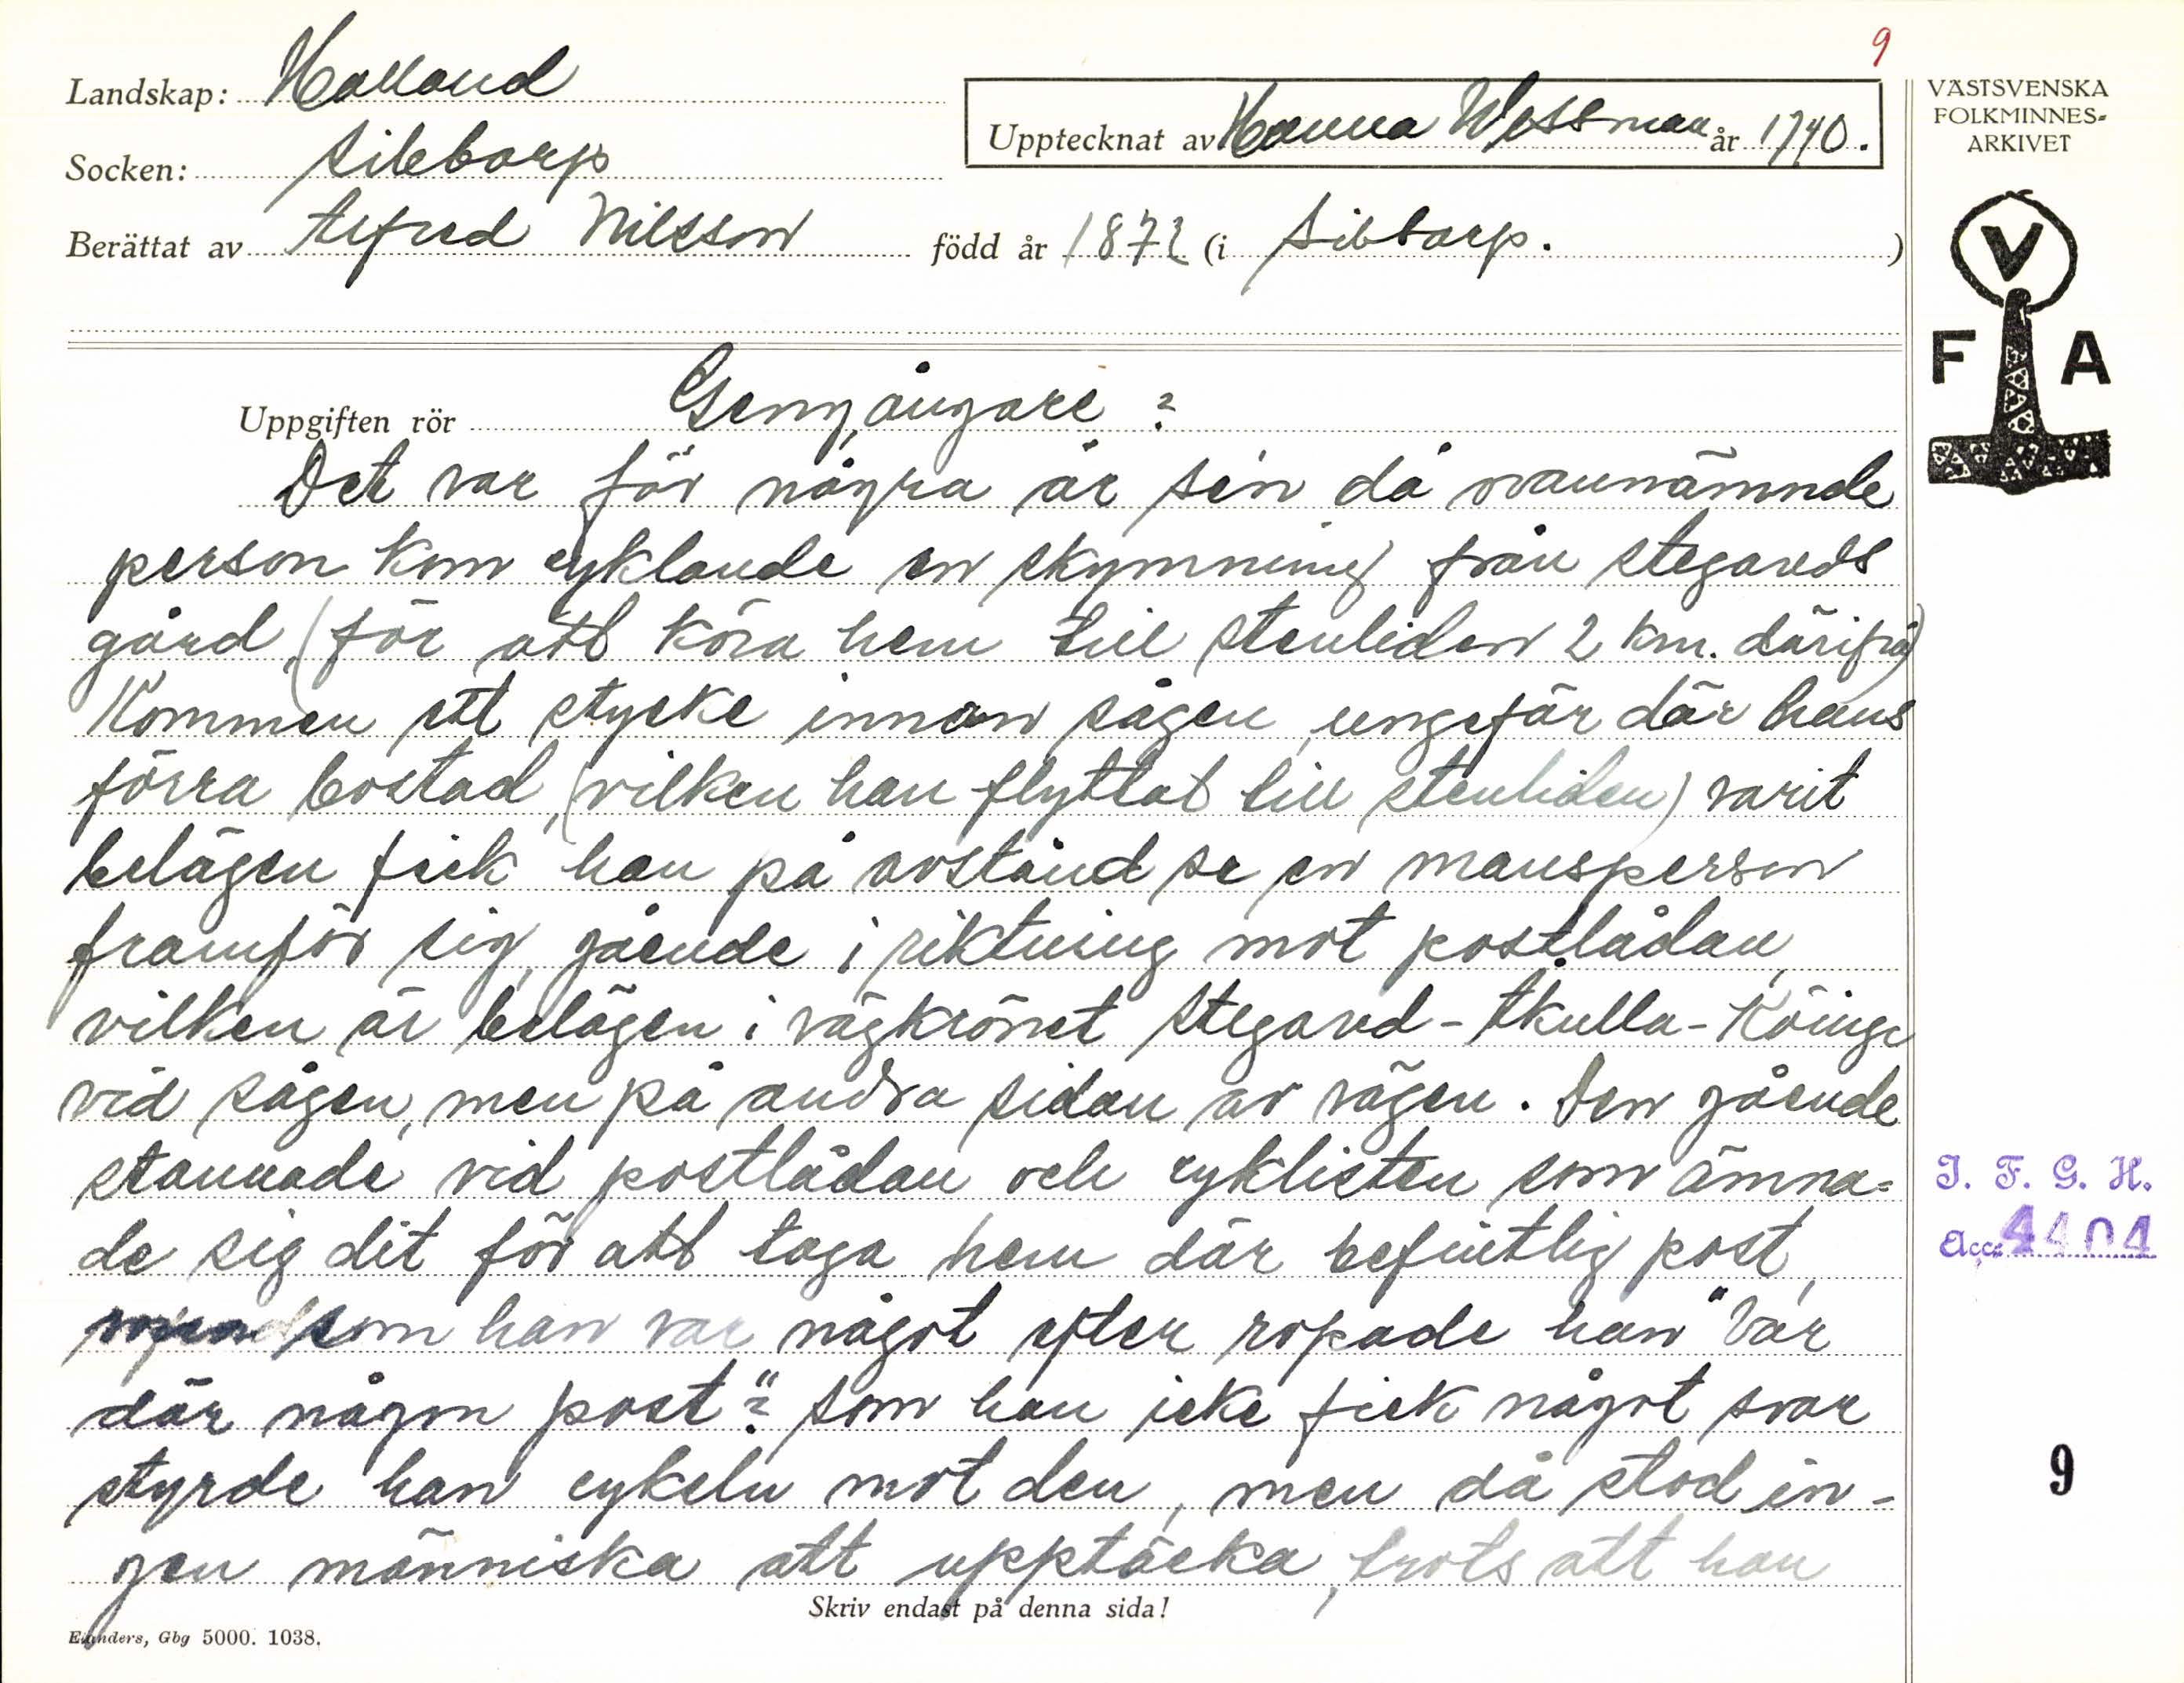 9
Landskap: Halland
Upptecknat av Hanna Wessman år 1940.
VÄSTSVENSKA
FOLKMINNES-
ARKIVET
Socken: Sibbarp
Berättat av Alfred Nilsson född år 1872 (i Sibbarp. )
V
F A
Uppgiften rör Gengångare?
Det var för några år sén då ovannämnde
person kom cyklande en skymning från Stegareds
gård, (för att köra hem till Stenliden 2 km. därifrå)
Kommen ett stycke innan sågen, ungefär där hans
förra bostad, (vilken han flyttat till Stenliden) varit
belägen fick han på avstånd se en mansperson
framför sig, gående i riktning mot postlådan,
vilken är belägen i vägkrönet Stegared-Skulla-Köinge
vid sågen, men på andra sidan av vägen. Den gående
stannade vid postlådan och cyklisten som ämna-
de sig dit för att taga hem där befintlig post,
som han var något efter ropade han "Var
där någon post"? Som han icke fick något svar
styrde han cykeln mot den, men då stod in-
gen människa att upptäcka, trots att han
Skriv endast på denna sida!
Elanders, Gbg 5000. 1038.
I. F. G. H.
Acc. 4404
9